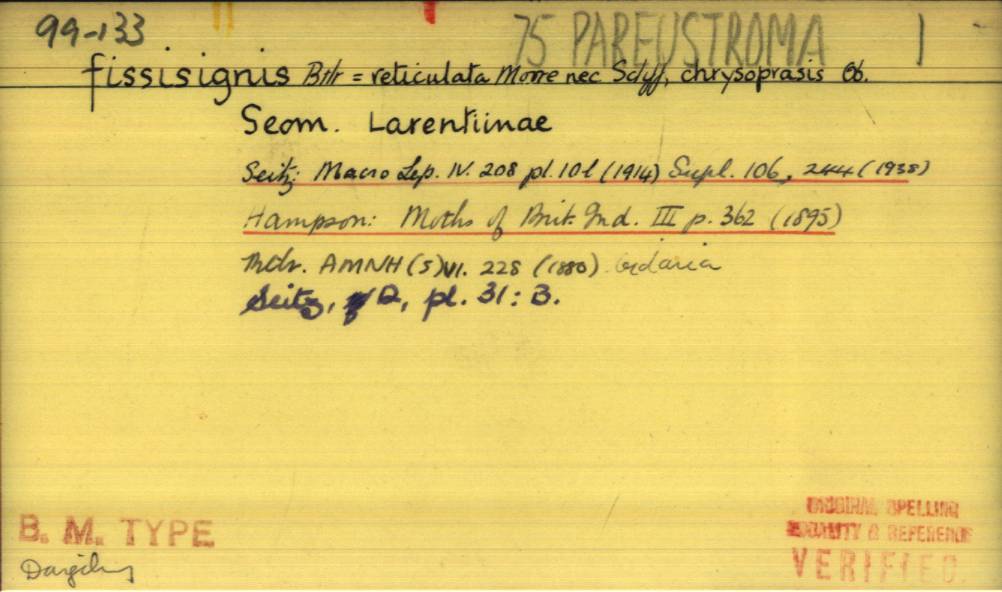 99-133
75 PAREUSTROMA 1
fissisignis Btlr = reticulata Moore nec Schff, chrysoprasis Ob.
Seom. Larentiinae
Seitz: Macro Lep. IV. 208 pl. 10l (1914) Supl. 106, 244 (1938)
Hampson: Moths of Brit. Ind. III p. 362 (1895)
Btlr. AMNH (5) VI. 228 (1880) Cidaria
Seitz, 12, pl. 31: B.
B. M. TYPE
ORIGINAL SPELLING
LOCALITY & REFERENCE
VERIFIED.